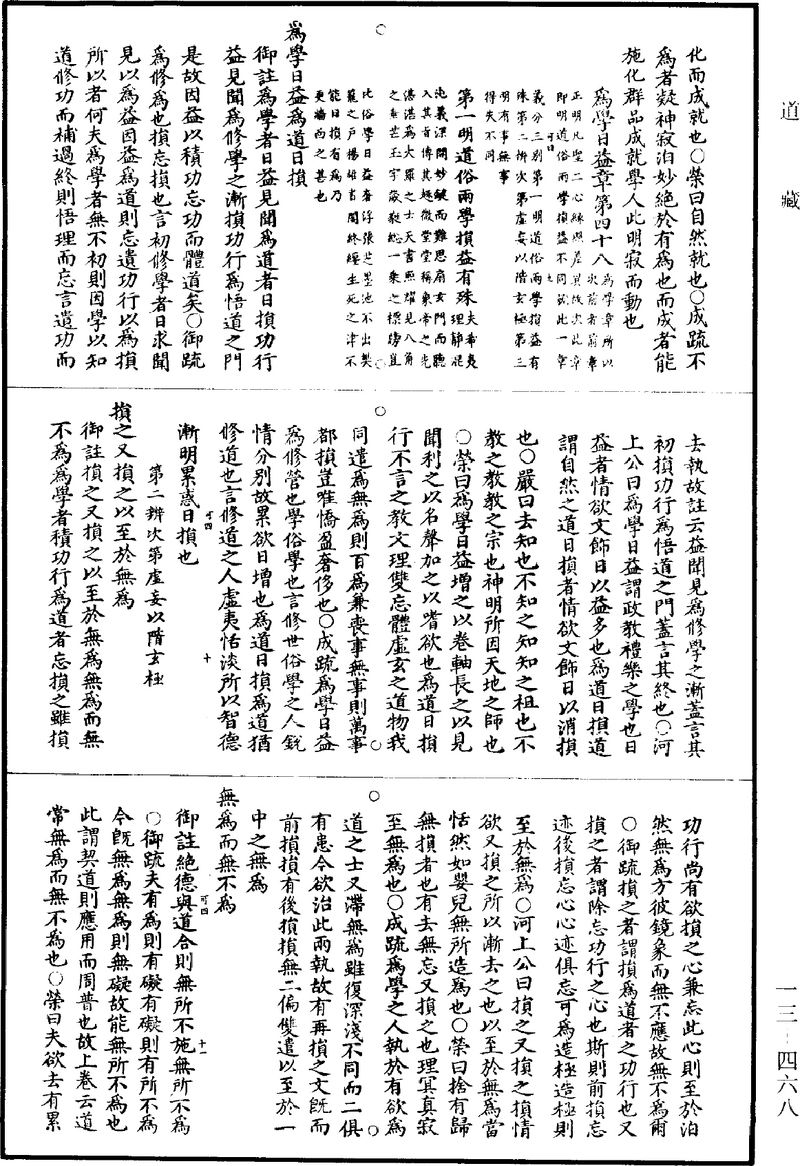 道藏
化而成就也○榮曰自然就也○成疏不
為者凝神寂泊妙絕於有為也而成者能
施化群品成就學人此明寂而動也
為學日益章第四十八
為學章所以
次前者前章
正明凡聖二心緣照差異故次此章
即明道俗兩學損益不同就此一章
義分三別第一明道俗兩學損益有
殊第二辨次第虛妄以階玄極第三
明有事無事
得失不同
可四
九
第一明道俗兩學損益有殊
夫希夷
理靜混
沌義深開妙鍵而難思扇玄門而聽
入其旨傳其趣微堂堂稱象帝之先
湛湛為大羅之士天書照耀見八角
之垂芒玉字葳蕤総一乘之標牓豈
比俗學日益奢浮張芝墨池不出樊
籠之戶楊雄書閣終纏生死之津不
能日損有為乃
更牆面之甚也
為學日益為道日損
御註為學者日益見聞為道者日損功行
益見聞為修學之漸損功行為悟道之門
是故因益以積功忘功而體道矣○御疏
為修為也損忘損也言初修學者日求聞
見以為益因益為道則忘遺功行以為損
所以者何夫為學者無不初則因學以知
道修功而補過終則悟理而忘言遺功而
去執故註云益聞見為修學之漸蓋言其
初損功行為悟道之門蓋言其終也○河
上公曰為學日益謂政教禮樂之學也日
益者情欲文飾日以益多也為道日損道
謂自然之道日損者情欲文飾日以消損
也○嚴曰去知也不知之知知之祖也不
教之教教之宗也神明所因天地之師也
○榮曰為學日益增之以卷軸長之以見
聞利之以名聲加之以嗜欲也為道日損
行不言之教文理雙忘體虛玄之道物我
同遣為無為則百為兼喪事無事則萬事
都損豈唯憍盈奢侈也○成疏為學日益
為修營也學俗學也言修世俗學之人銳
情分別故累欲日增也為道日損為道猶
修道也言修道之人虛夷恬淡所以智德
漸明累惑日損也
可四
十
第二辨次第虛妄以階玄極
損之又損之以至於無為
御註損之又損之以至於無為無為而無
不為為學者積功行為道者忘損之雖損
功行尚有欲損之心兼忘此心則至於泊
然無為方彼鏡象而無不應故無不為爾
○御疏損之者謂損為道者之功行也又
損之者謂除忘功行之心也斯則前損忘
迹後損忘心心迹俱忘可為造極造極則
至於無為○河上公曰損之又損之損情
欲又損之所以漸去之也以至於無為當
恬然如嬰兒無所造為也○榮曰捨有歸
無損者也有去無忘又損之也理冥真寂
至無為也○成疏為學之人執於有欲為
道之士又滯無為雖復深淺不同而二俱
有患今欲治此兩執故有再損之文既而
前損損有後損損無二偏雙遣以至於一
中之無為
無為而無不為
御註絕德與道合則無所不施無所不為
可四
十一
○御疏夫有為則有礙有礙則有所不為
今既無為無為則無礙故能無所不為也
此謂契道則應用而周普也故上卷云道
常無為而無不為也○榮曰夫欲去有累
一三－四六八